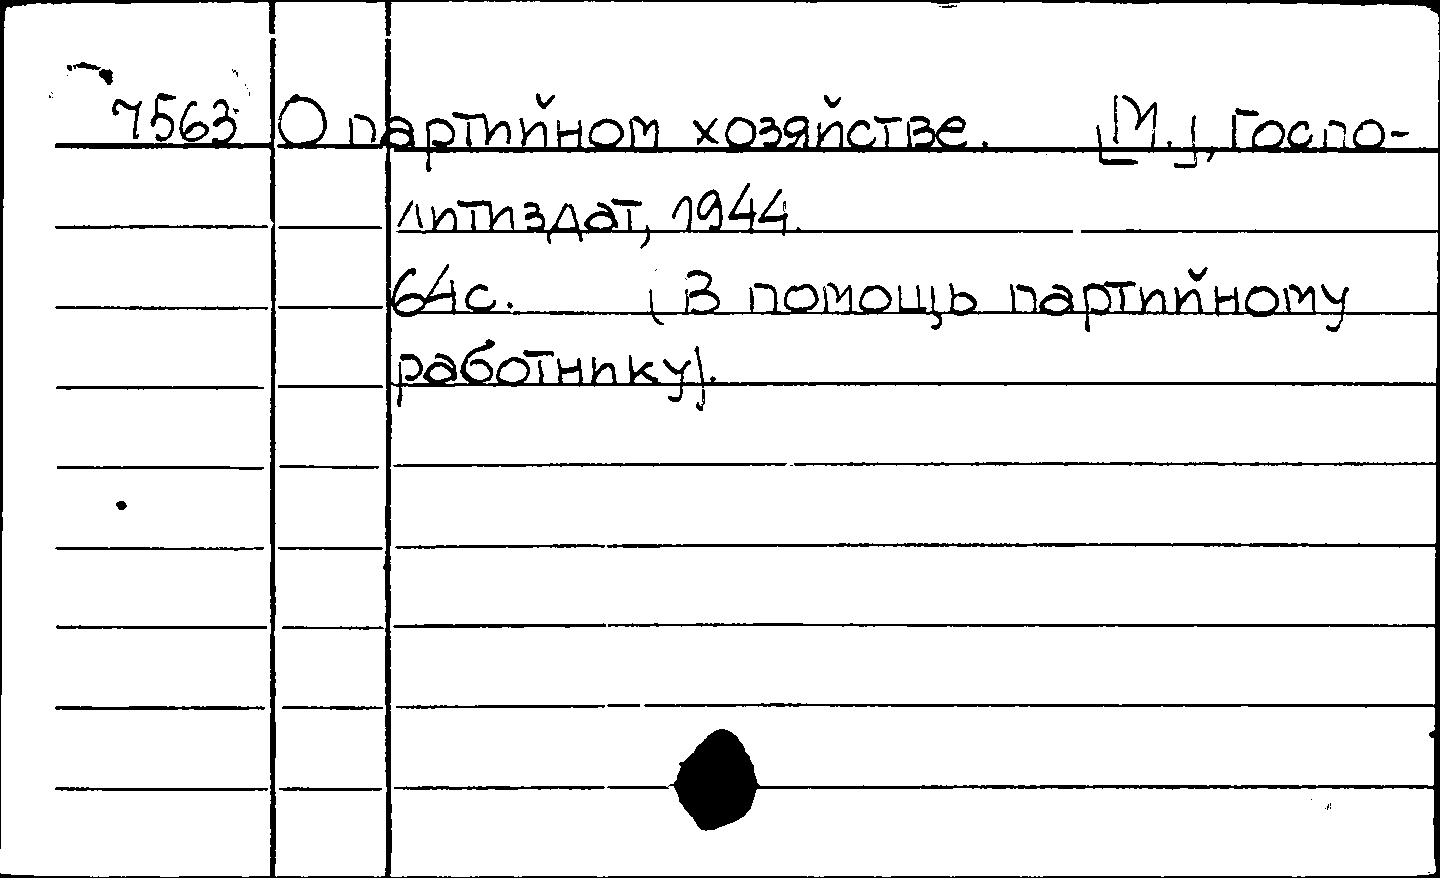 7563 О партийном хозяйстве. [М.], Госпо-
литиздат, 1944.
64с. (В помощь партийному
работнику).